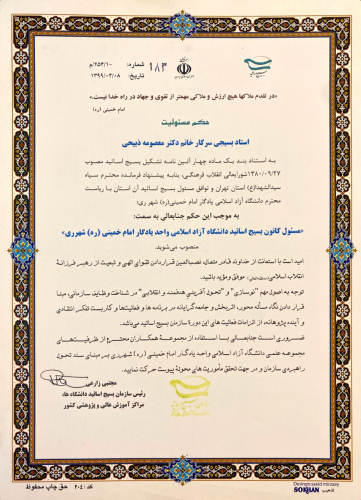 شماره: ۲۵۳/۱۰۰/م
۱۸۳
تاریخ: ۱۳۹۹/۰۴/۰۸
«در تقدم ملاکها هیچ ارزش و ملاکی مهمتر از تقوی و جهاد در راه خدا نیست.»
امام خمینی (ره)
حکم مسئولیت
استاد بسیجی سرکار خانم دکتر معصومه ذبیحی
به استناد بند یک ماده چهار آئین نامه تشکیل بسیج اساتید مصوب
۱۳۸۰/۰۹/۲۷ شورایعالی انقلاب فرهنگی، بنابه پیشنهاد فرمانده محترم سپاه
سیدالشهداء(ع) استان تهران و توافق مسئول بسیج اساتید آن استان با ریاست
محترم دانشگاه آزاد اسلامی یادگار امام خمینی(ره) شهر ری؛
به موجب این حکم جنابعالی به سمت:
«مسئول کانون بسیج اساتید دانشگاه آزاد اسلامی واحد یادگار امام خمینی (ره) شهرری»
منصوب می‌شوید.
امید است با استعانت از خداوند قادر متعال، نصب‌العین قراردادن تقوای الهی و تبعیت از رهبر فرزانهٔ
انقلاب اسلامی موفق و مؤید باشید.
توجه به اصول مهم "نوسازی" و "تحول آفرینی هدفمند و انقلابی" در شناخت وظایف سازمانی، مبنا
قرار دادن نگاه مسأله محور، اثربخش و جامعه‌گرایانه در برنامه ها و فعالیتها و کاربست تفکر انتقادی
و آینده پژوهانه، از الزامات فعالیت های این دورهٔ سازمان بسیج اساتید می‌باشد.
ضروری است جنابعالی با استفاده از مجموعهٔ همکاران محترم از ظرفیت‌های
مجموعه علمی دانشگاه آزاد اسلامی واحد یادگار امام خمینی (ره) شهرری بر مبنای سند تحول
راهبردی سازمان و در جهت تحقق مأموریت‌های محولهٔ پیوست حرکت نمایید.
مجتبی زارعی
رئیس سازمان بسیج اساتید دانشگاه ها،
مراکز آموزش عالی و پژوهشی کشور
کد: ۲۰۴۱ حق چاپ محفوظ
Desingn:saeid mirzaey
SOKHAN تذهیب